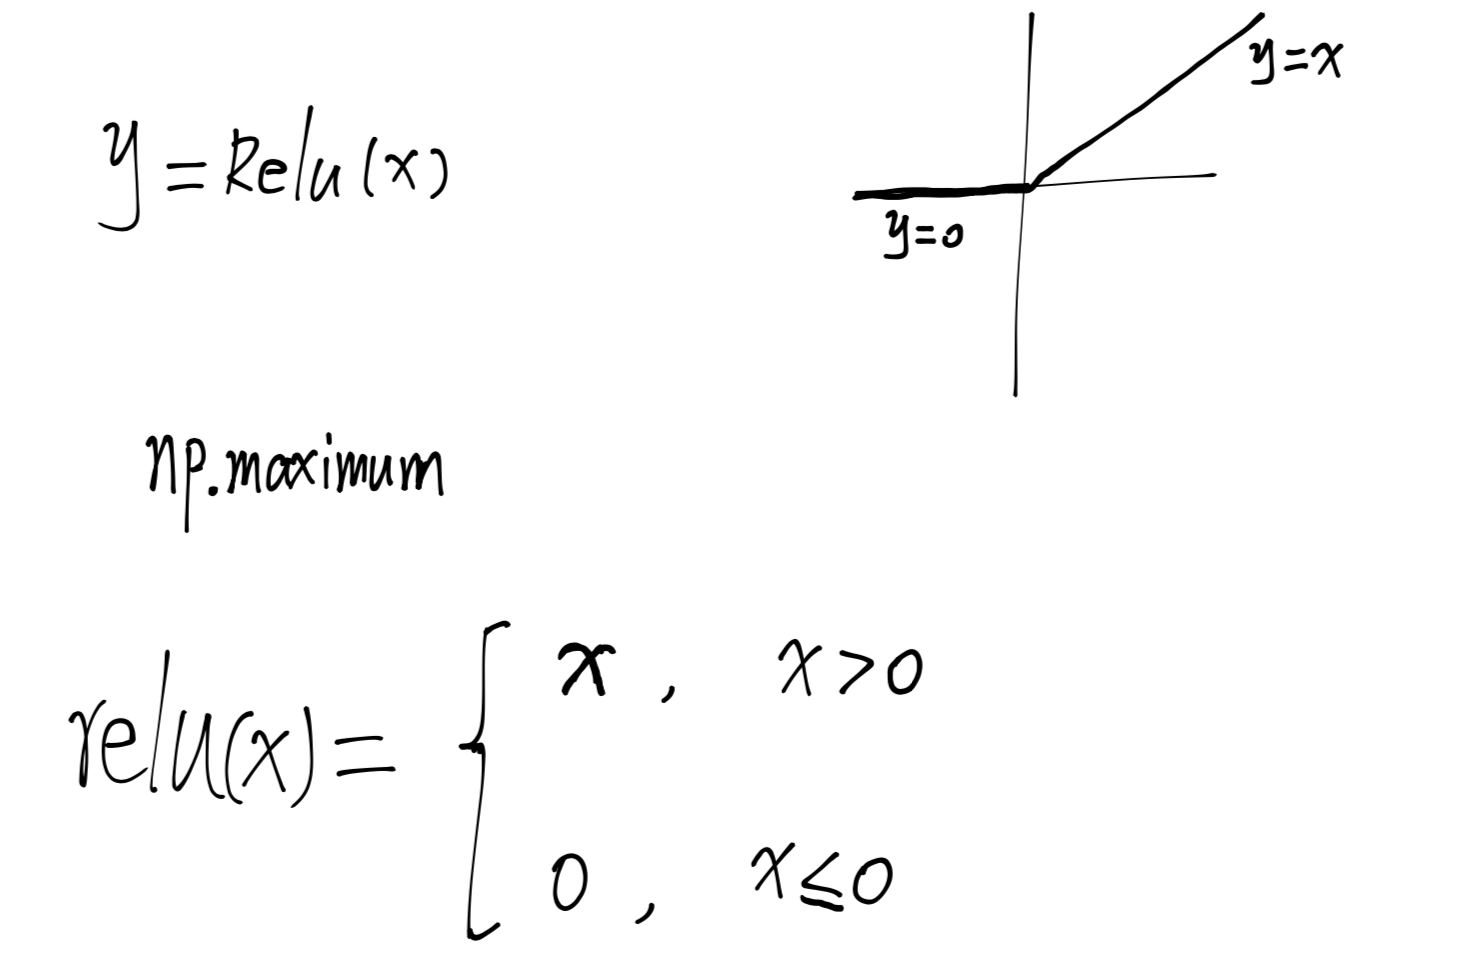 y=x
y=Relu(x)
y=0
np.maximum
relu(x)= { x, x>0
0, x≤0